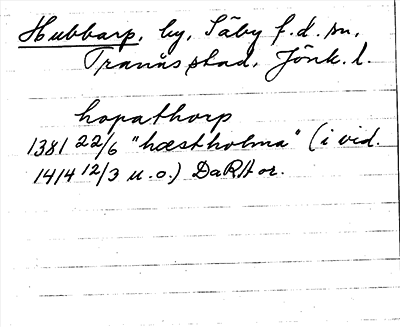 Hubbarp, by, Säby f.d. sn,
Tranås stad, Jönk. l.
hopathorp
1381 22/6 "hæstholma" (i vid.
1414 12/3 u.o.) DaRA or.